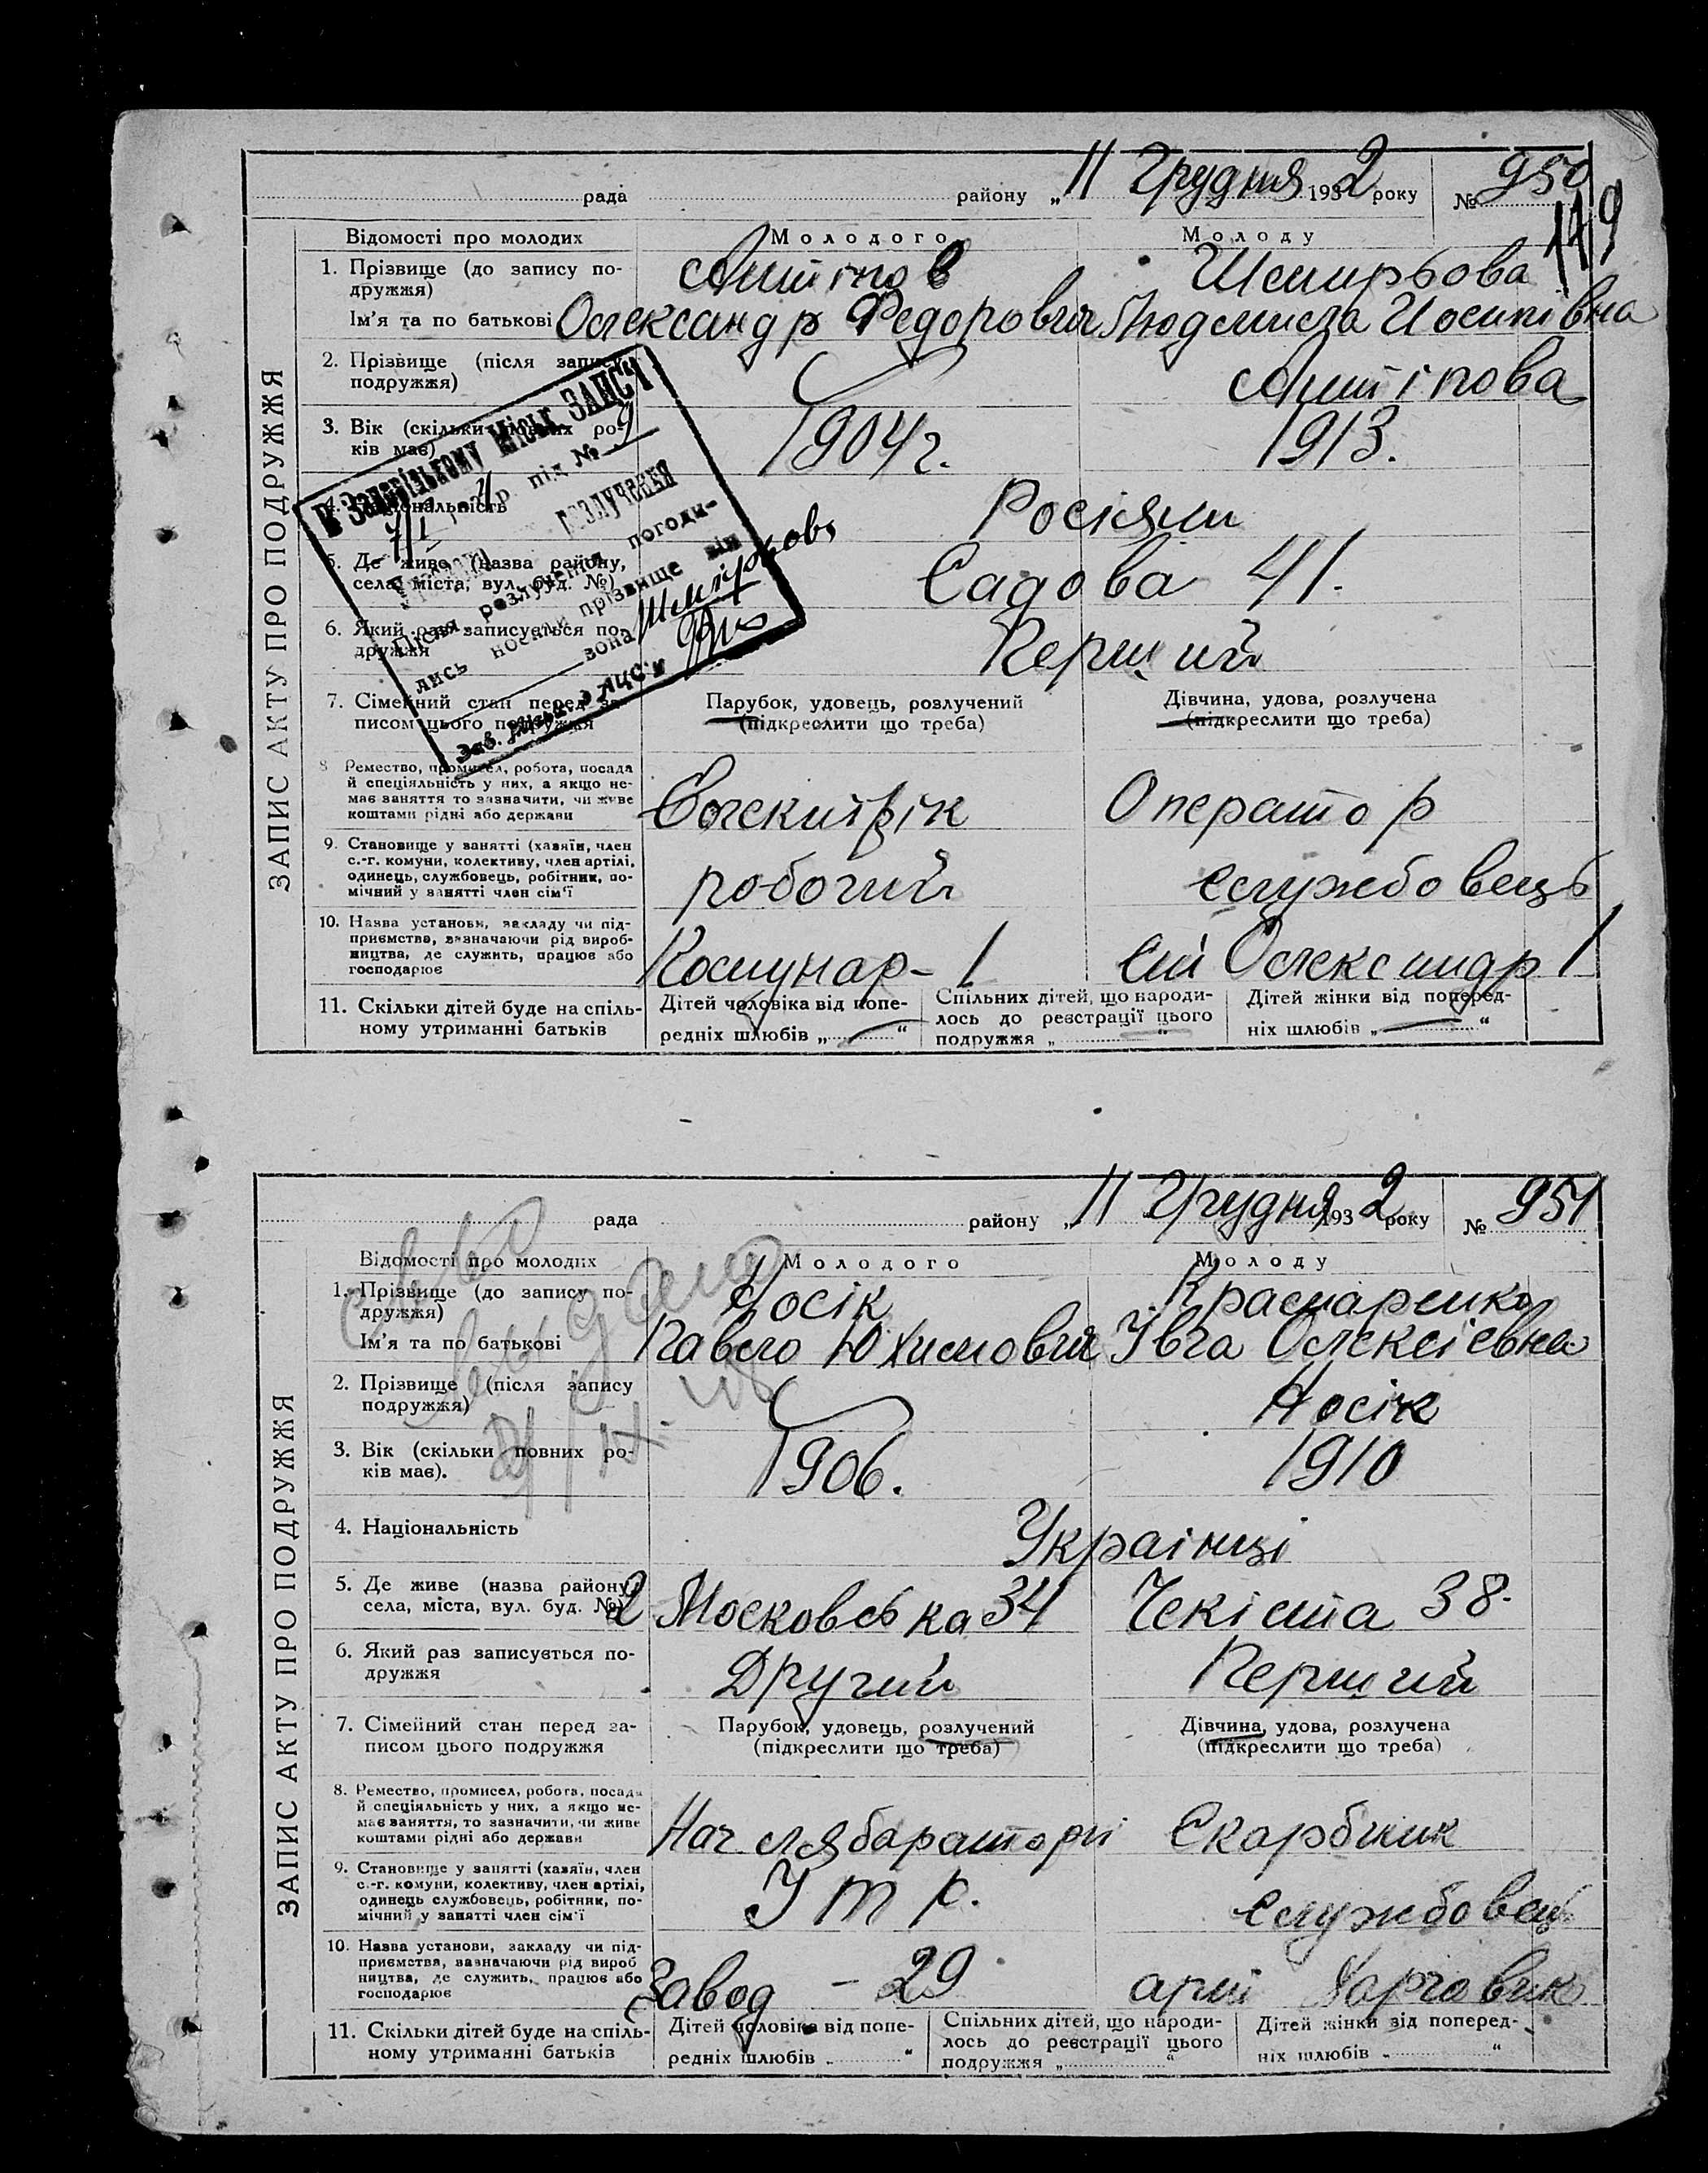 рада району „11 Грудня 1932 року № 950
149
ЗАПИС АКТУ ПРО ПОДРУЖЖЯ
Відомості про молодих Молодого Молоду
1. Прізвище (до запису по-
дружжя)
Ім’я та по батькові Олександр Федорович Людмила Йосипівна
2. Прізвище (після запису
подружжя)
3. Вік (скільки повних ро-
ків має) 1904 г. 1913.
4. Національність Росіяни
5. Де живе (назва району,
села, міста, вул. буд. №) Садова 41.
6. Який раз записується по-
дружжя Перший
7. Сімейний стан перед за-
писом цього подружжя
Парубок, удовець, розлучений
(підкреслити що треба)
Дівчина, удова, розлучена
(підкреслити що треба)
8 Ремество, промисел, робота, посада
й спеціяльність у них, а якщо не-
має заняття то зазначити, чи живе
коштами рідні або держави
Єлектрік Оператор
9. Становище у занятті (хазяїн, член
с.-г. комуни, колективу, член артілі,
одинець, службовець, робітник, по-
мічний у занятті член сім’ї
робочий службовець
10. Назва установи, закладу чи під-
приємства, зазначаючи рід вироб-
ництва, де служить, працює або
господарює
Комунар - 1 Олександр 1
11. Скільки дітей буде на спіль-
ному утриманні батьків
Дітей чоловіка від попе-
редніх шлюбів „ “
Спільних дітей, що народи-
лось до реєстрації цього
подружжя „ “
Дітей жінки від поперед-
ніх шлюбів „ “
В Запорізькому Міськ. ЗАПС’і
р. під № 9
розлучення
Після розлучення погоди-
лись носити прізвище він
вона
Зав. АЦС’у
рада району „11 Грудня 1932 року № 951
ЗАПИС АКТУ ПРО ПОДРУЖЖЯ
Відомості про молодих Молодого Молоду
1. Прізвище (до запису по-
дружжя) Носік
Ім’я та по батькові Павло Юхимович Івга Олексіевна
2. Прізвище (після запису
подружжя) Носік
3. Вік (скільки повних ро-
ків має). 1906. 1910
4. Національність Украінці
5. Де живе (назва району,
села, міста, вул. буд. №) 2 Московська 34 Чекіста 38.
6. Який раз записується по-
дружжя Другий Перший
7. Сімейний стан перед за-
писом цього подружжя
Парубок, удовець, розлучений
(підкреслити що треба)
Дівчина, удова, розлучена
(підкреслити що треба)
8. Ремество, промисел, робота, посада
й спеціяльність у них, а якщо не-
має заняття, то зазначити, чи живе
коштами рідні або держави
Нач лябараторіі Скарбник
9. Становище у занятті (хазяїн, член
с.-г. комуни, колективу, член артілі,
одинець службовець, робітник, по-
мічний у занятті член сім’ї
І т р. службовець
10. Назва установи, закладу чи під-
приємства, зазначаючи рід вироб
ництва, де служить, працює або
господарює
Завод - 29 арт Харчовик
11. Скільки дітей буде на спіль-
ному утриманні батьків
Дітей чоловіка від попе-
редніх шлюбів „ “
Спільних дітей, що народи-
лось до реєстрації цього
подружжя „ “
Дітей жінки від поперед-
ніх шлюбів „ “